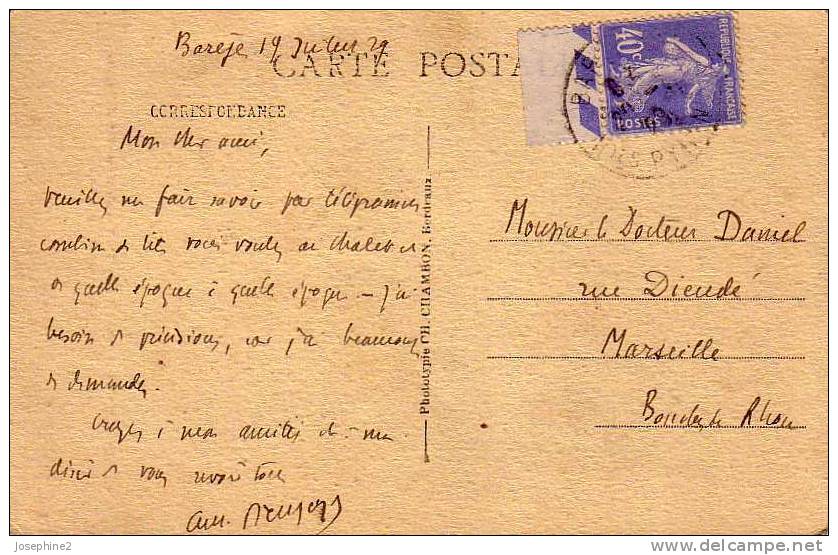 Barèges 19 Juillet 29
CARTE POSTALE
CORRESPONDANCE
Mon cher ami,
Veuillez me faire savoir par télégramme
combien de lits vous voulez au chalet et
de quelle époque à quelle époque – j'ai
besoin de précisions, car j'ai beaucoup
de demandes.
Croyez à mon amitié et à mon
désir de vous revoir tous
Phototypie CH. CHAMBON, Bordeaux
REPUBLIQUE FRANÇAISE
40c
POSTES
Monsieur le Docteur Daniel
rue Dieudé
Marseille
Bouches du Rhône
Josephine2
www.delcampe.net